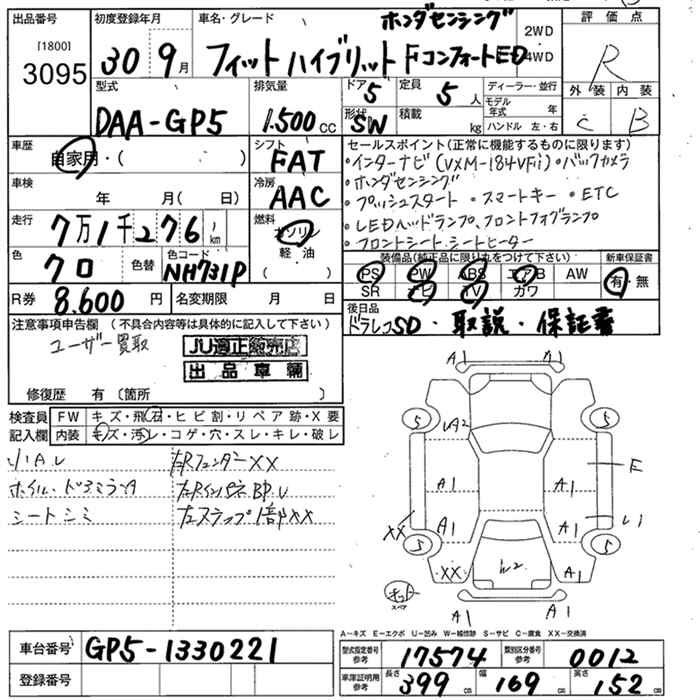 出品番号 初度登録年月 車名・グレード ホンダセンシング 2WD 評価点
[1800]
3095 30 9月 フィットハイブリット Fコンフォート ED 4WD R
型式 排気量 ドア 5 定員 5人 ディーラー・並行 外装 内装
DAA-GP5 1.500cc 形状 SW 積載 kg モデル年式 年 C B
ハンドル 左・右
車歴 シフト セールスポイント(正常に機能するものに限ります)
自家用・( ) FAT ・インターナビ(VXM-184VFi)・バックカメラ
車検 冷房 ・ホンダセンシング
年 月( 日) AAC ・プッシュスタート ・スマートキー ・ETC
走行 燃料 ・LEDヘッドランプ、フロントフォグランプ
7万1千276km ガソリン ・フロントシート、シートヒーター
色 色替 色コード 軽・油 装備品(純正品に限り丸をつけて下さい) 新車保証書
クロ NH731P ( ) PS PW ABS エアB AW 有・無
SR ナビ TV カワ
R券 8.600円 名変期限 月 日 後日品
ドラレコSD・取説・保証書
注意事項申告欄 (不具合内容等は具体的に記入して下さい)
ユーザー買取 JU適正販売店
出品車輌
修復歴 有(箇所 )
検査員 FW キズ・飛石・ヒビ割・リペア跡・X要
記入欄 内装 キズ・汚れ・コゲ・穴・スレ・キレ・破レ
小A.U 右Rフェンダー XX
シートシミ
A1 A1
5 UA2 5
A1 A1 E
XX A1 A1 U1
5 5
XX W2 A1
キット
スペア
A1 A1
A-キズ E-エクボ U-凹み W-補修跡 S-サビ C-腐食 XX-交換済
車台番号 GP5-1330221 型式指定番号 参考 17574 類別区分番号 参考 0012
登録番号 車庫証明用 参考 長さ 399cm 幅 169cm 高さ 152cm